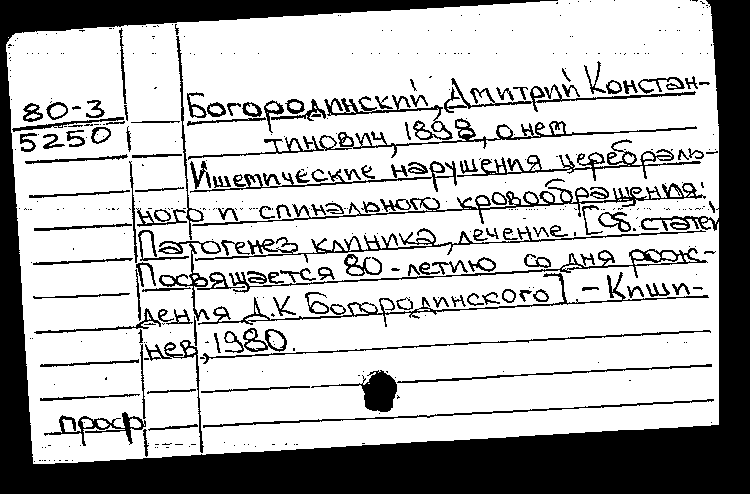 80-3
5250
Богородинский, Дмитрий Констан-
тинович, 1898, о нем
Ишемические нарушения церебраль-
ного и спинального кровообращения:
Патогенез, клиника, лечение. [Сб. статей
Посвящается 80-летию со дня рож-
дения Д.К. Богородинского]. - Киши-
нев, 1980.
проф